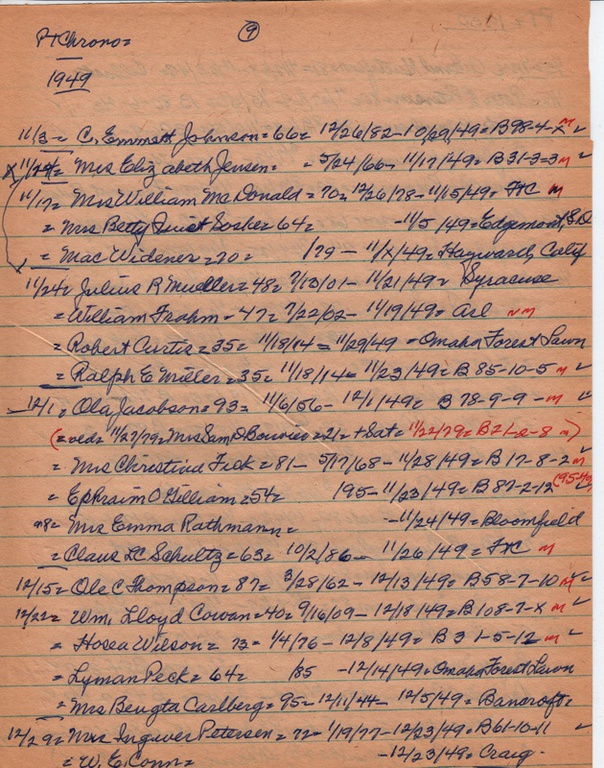 P+Chrono= 9
1949
11/3= C. Emmett Johnson=66= 12/26/82-10/29/49=B98-4-x m
x 11/24= Mrs Elizabeth Jensen= = 5/24/66-11/17/49=B31-3=3 m
11/17= Mrs William McDonald=70=12/26/78-11/15/49= m
= Mrs Betty Sosker=64= -11/5/49=Edgemont, S.D
= Mac Widener=70= /79-11/x/49=Hayward, Calif
11/24= Julius R Mueller=48= 7/13/01-11/21/49= Syracuse
=William Frahm=47=7/22/02-11/19/49= arl nm
=Robert Curtis=35=11/18/14=11/29/49=Omaha Forest Lawn
=Ralph E Miller=35=11/18/14=11/23/49=B85-10-5 m
-12/1= Ola Jacobson=93=11/6/56-12/1/49=B78-9-9-m
(=ved=11/27/79=Mrs Sam D =21=+Sat=11/22/79=B21-2-8 m)
= Mrs Christina Fick=81-5/17/68-11/28/49=B17-8-2 m
= Ephraim O Gilliam=54= /95-11/23/49=B87-2-12
= Mrs Emma Rathmann= -11/24/49=Bloomfield
=Claus LC Schultz=63=10/2/86-11/26/49= m
12/15= Ole C Thompson=87=3/28/62-12/13/49=B58-7-10 m
12/22= Wm. Lloyd Cowan=40=9/16/09-12/18/49=B108-7-x m
= Hosea Wilson=73=1/4/76-12/8/49=B31-5-12 m
=Lyman Peck=64= /85-12/14/49=Omaha Forest Lawn
=Mrs Bengta Carlberg=95-12/11/44-12/5/49=Bancroft=
12/29= Mrs Ingwer Petersen=72=1/19/77-12/23/49=B61-10-11
= W. E. Conn= -12/23/49=Craig.